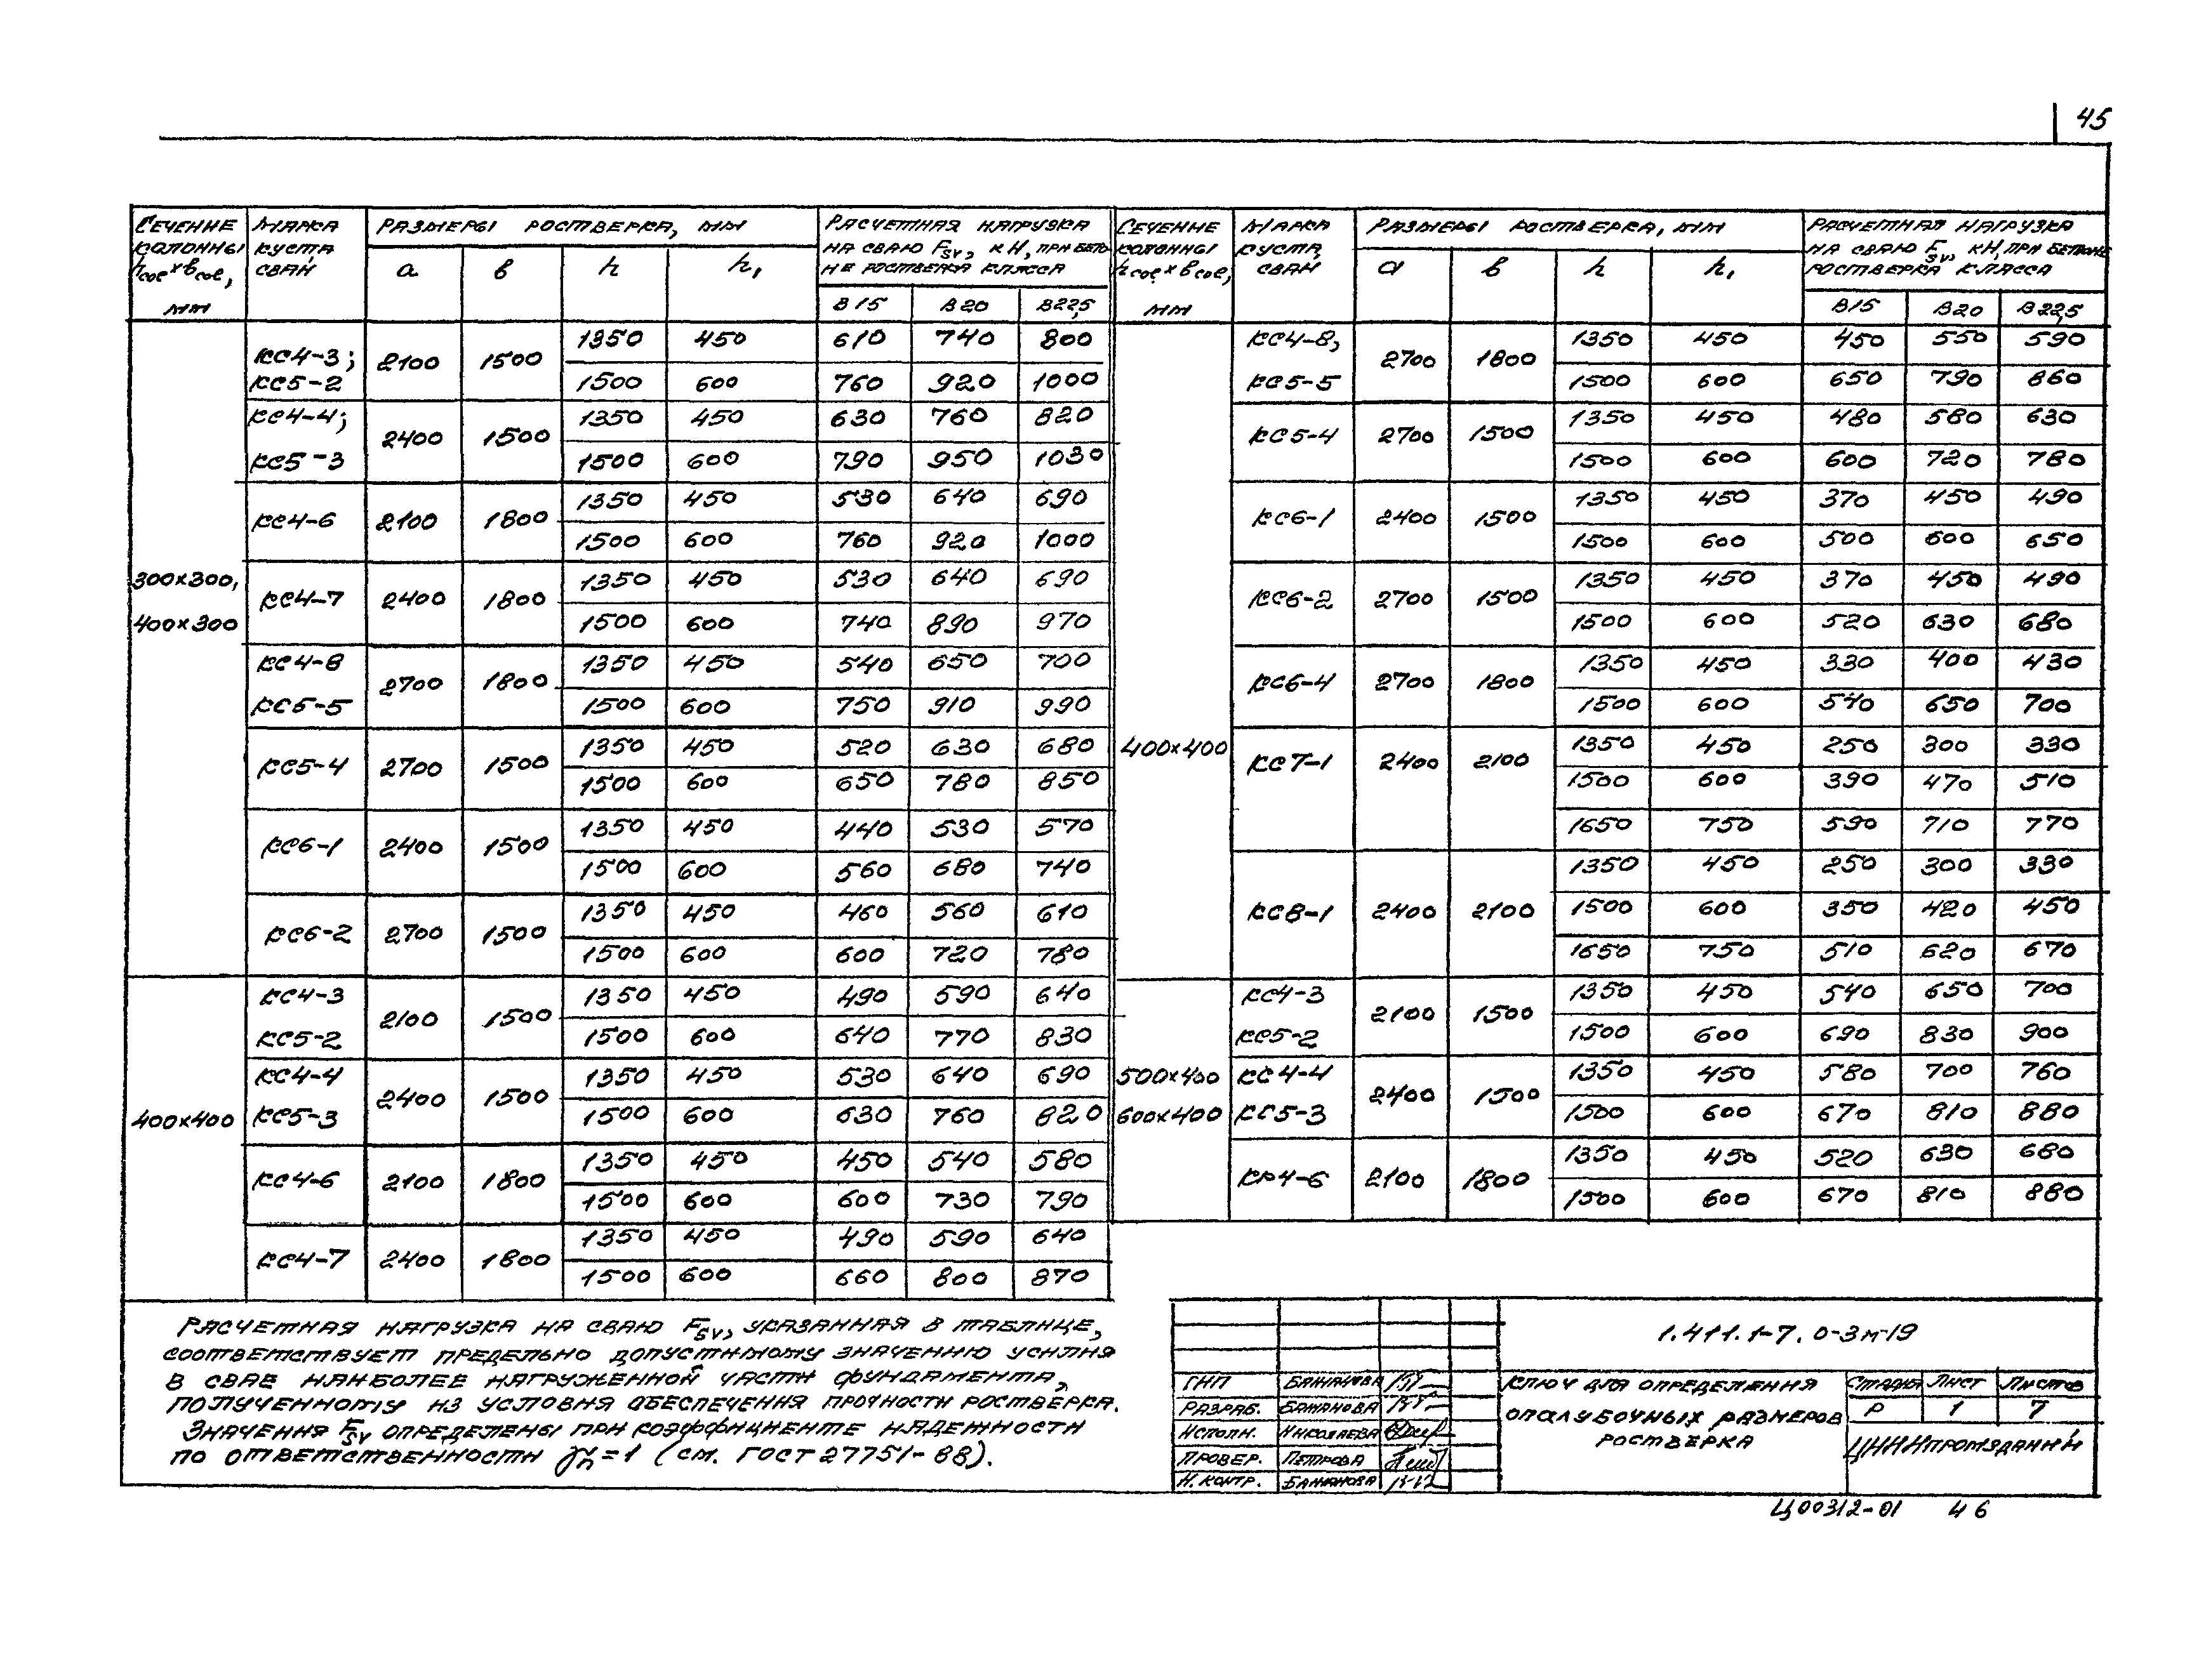 45
СЕЧЕНИЕ КОЛОННЫ hcol×bcol, мм
МАРКА КУСТА СВАЙ
РАЗМЕРЫ РОСТВЕРКА, ММ
РАСЧЕТНАЯ НАГРУЗКА НА СВАЮ Fsv, кН, ПРИ БЕТОНЕ РОСТВЕРКА КЛАССА
a b h h1 B15 B20 B22,5
300×300, 400×300
КС4-3; КС5-2 2100 1500 1350 450 610 740 800
1500 600 760 920 1000
КС4-4; КС5-3 2400 1500 1350 450 630 760 820
1500 600 790 950 1030
КС4-6 2100 1800 1350 450 530 640 690
1500 600 760 920 1000
КС4-7 2400 1800 1350 450 530 640 690
1500 600 740 890 970
КС4-8 КС5-5 2700 1800 1350 450 540 650 700
1500 600 750 910 990
КС5-4 2700 1500 1350 450 520 630 680
1500 600 650 780 850
КС6-1 2400 1500 1350 450 440 530 570
1500 600 560 680 740
КС6-2 2700 1500 1350 450 460 560 610
1500 600 600 720 780
400×400
КС4-3 КС5-2 2100 1500 1350 450 490 590 640
1500 600 640 770 830
КС4-4 КС5-3 2400 1500 1350 450 530 640 690
1500 600 630 760 820
КС4-6 2100 1800 1350 450 450 540 580
1500 600 600 730 790
КС4-7 2400 1800 1350 450 490 590 640
1500 600 660 800 870
СЕЧЕНИЕ КОЛОННЫ hcol×bcol, мм
МАРКА КУСТА, СВАЙ
РАЗМЕРЫ РОСТВЕРКА, ММ
РАСЧЕТНАЯ НАГРУЗКА НА СВАЮ Fsv, кН, ПРИ БЕТОНЕ РОСТВЕРКА КЛАССА
a b h h1 B15 B20 B22,5
400×400
КС4-8, КС5-5 2700 1800 1350 450 450 550 590
1500 600 650 790 860
КС5-4 2700 1500 1350 450 480 580 630
1500 600 600 720 780
КС6-1 2400 1500 1350 450 370 450 490
1500 600 500 600 650
КС6-2 2700 1500 1350 450 370 450 490
1500 600 520 630 680
КС6-4 2700 1800 1350 450 330 400 430
1500 600 540 650 700
КС7-1 2400 2100 1350 450 250 300 330
1500 600 390 470 510
1650 750 590 710 770
КС8-1 2400 2100 1350 450 250 300 330
1500 600 350 420 450
1650 750 510 620 670
500×400 600×400
КС4-3 КС5-2 2100 1500 1350 450 540 650 700
1500 600 690 830 900
КС4-4 КС5-3 2400 1500 1350 450 580 700 760
1500 600 670 810 880
КР4-6 2100 1800 1350 450 520 630 680
1500 600 670 810 880
РАСЧЕТНАЯ НАГРУЗКА НА СВАЮ Fsv, УКАЗАННАЯ В ТАБЛИЦЕ,
СООТВЕТСТВУЕТ ПРЕДЕЛЬНО ДОПУСТИМОМУ ЗНАЧЕНИЮ УСИЛИЯ
В СВАЕ НАИБОЛЕЕ НАГРУЖЕННОЙ ЧАСТИ ФУНДАМЕНТА,
ПОЛУЧЕННОМУ ИЗ УСЛОВИЯ ОБЕСПЕЧЕНИЯ ПРОЧНОСТИ РОСТВЕРКА.
ЗНАЧЕНИЯ Fsv ОПРЕДЕЛЕНЫ ПРИ КОЭФФИЦИЕНТЕ НАДЕЖНОСТИ
ПО ОТВЕТСТВЕННОСТИ γn=1 (СМ. ГОСТ 27751-88).
1.411.1-7.0-3м-19
ГИП
РАЗРАБ.
ИСПОЛН. НИКОЛАЕВА
ПРОВЕР. ПЕТРОВА
Н. КОНТР.
КЛЮЧ ДЛЯ ОПРЕДЕЛЕНИЯ
ОПАЛУБОЧНЫХ РАЗМЕРОВ
РОСТВЕРКА
СТАДИЯ ЛИСТ ЛИСТОВ
Р 1 7
ЦНИИПРОМЗДАНИЙ
Ц00312-01 46